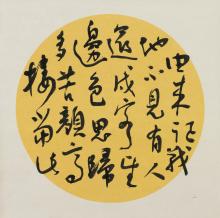 由来征戰
地不見有人
還戍客望
邊色思歸
多苦顏高
樓當此